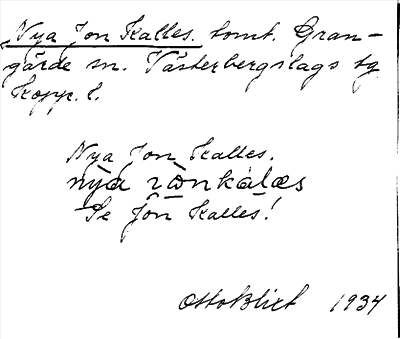 Nya Jon Kalles. tomt. Gran-
gärde sn. Västerbergslags tg
Kopp. l.
Nya Jon Kalles.
Se Jon Kalles!
Otto Blixt 1934